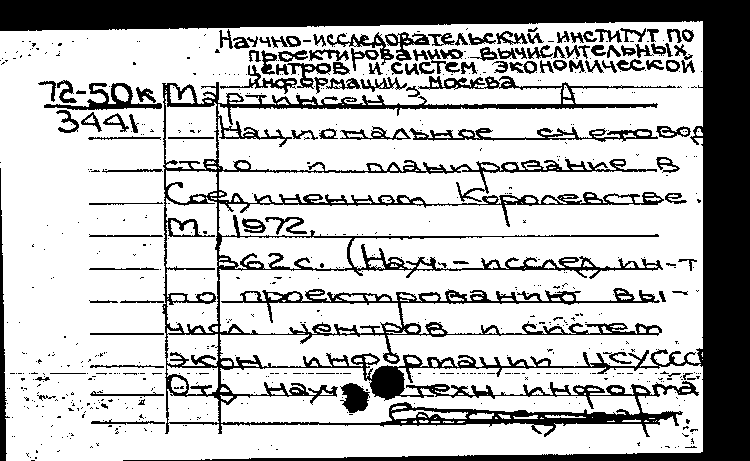 Научно-исследовательский институт по
проектированию вычислительных
центров и систем экономической
информации, Москва
72-50к Мартинсен, З А
3441
Национальное счетовод
ство и планирование в
Соединенном Королевстве.
М., 1972.
362 с. (Науч.-исслед. ин-т
по проектированию вы-
числ. центров и систем
экон. информации ЦСУ СССР
Отд науч техн. информа
См. след.